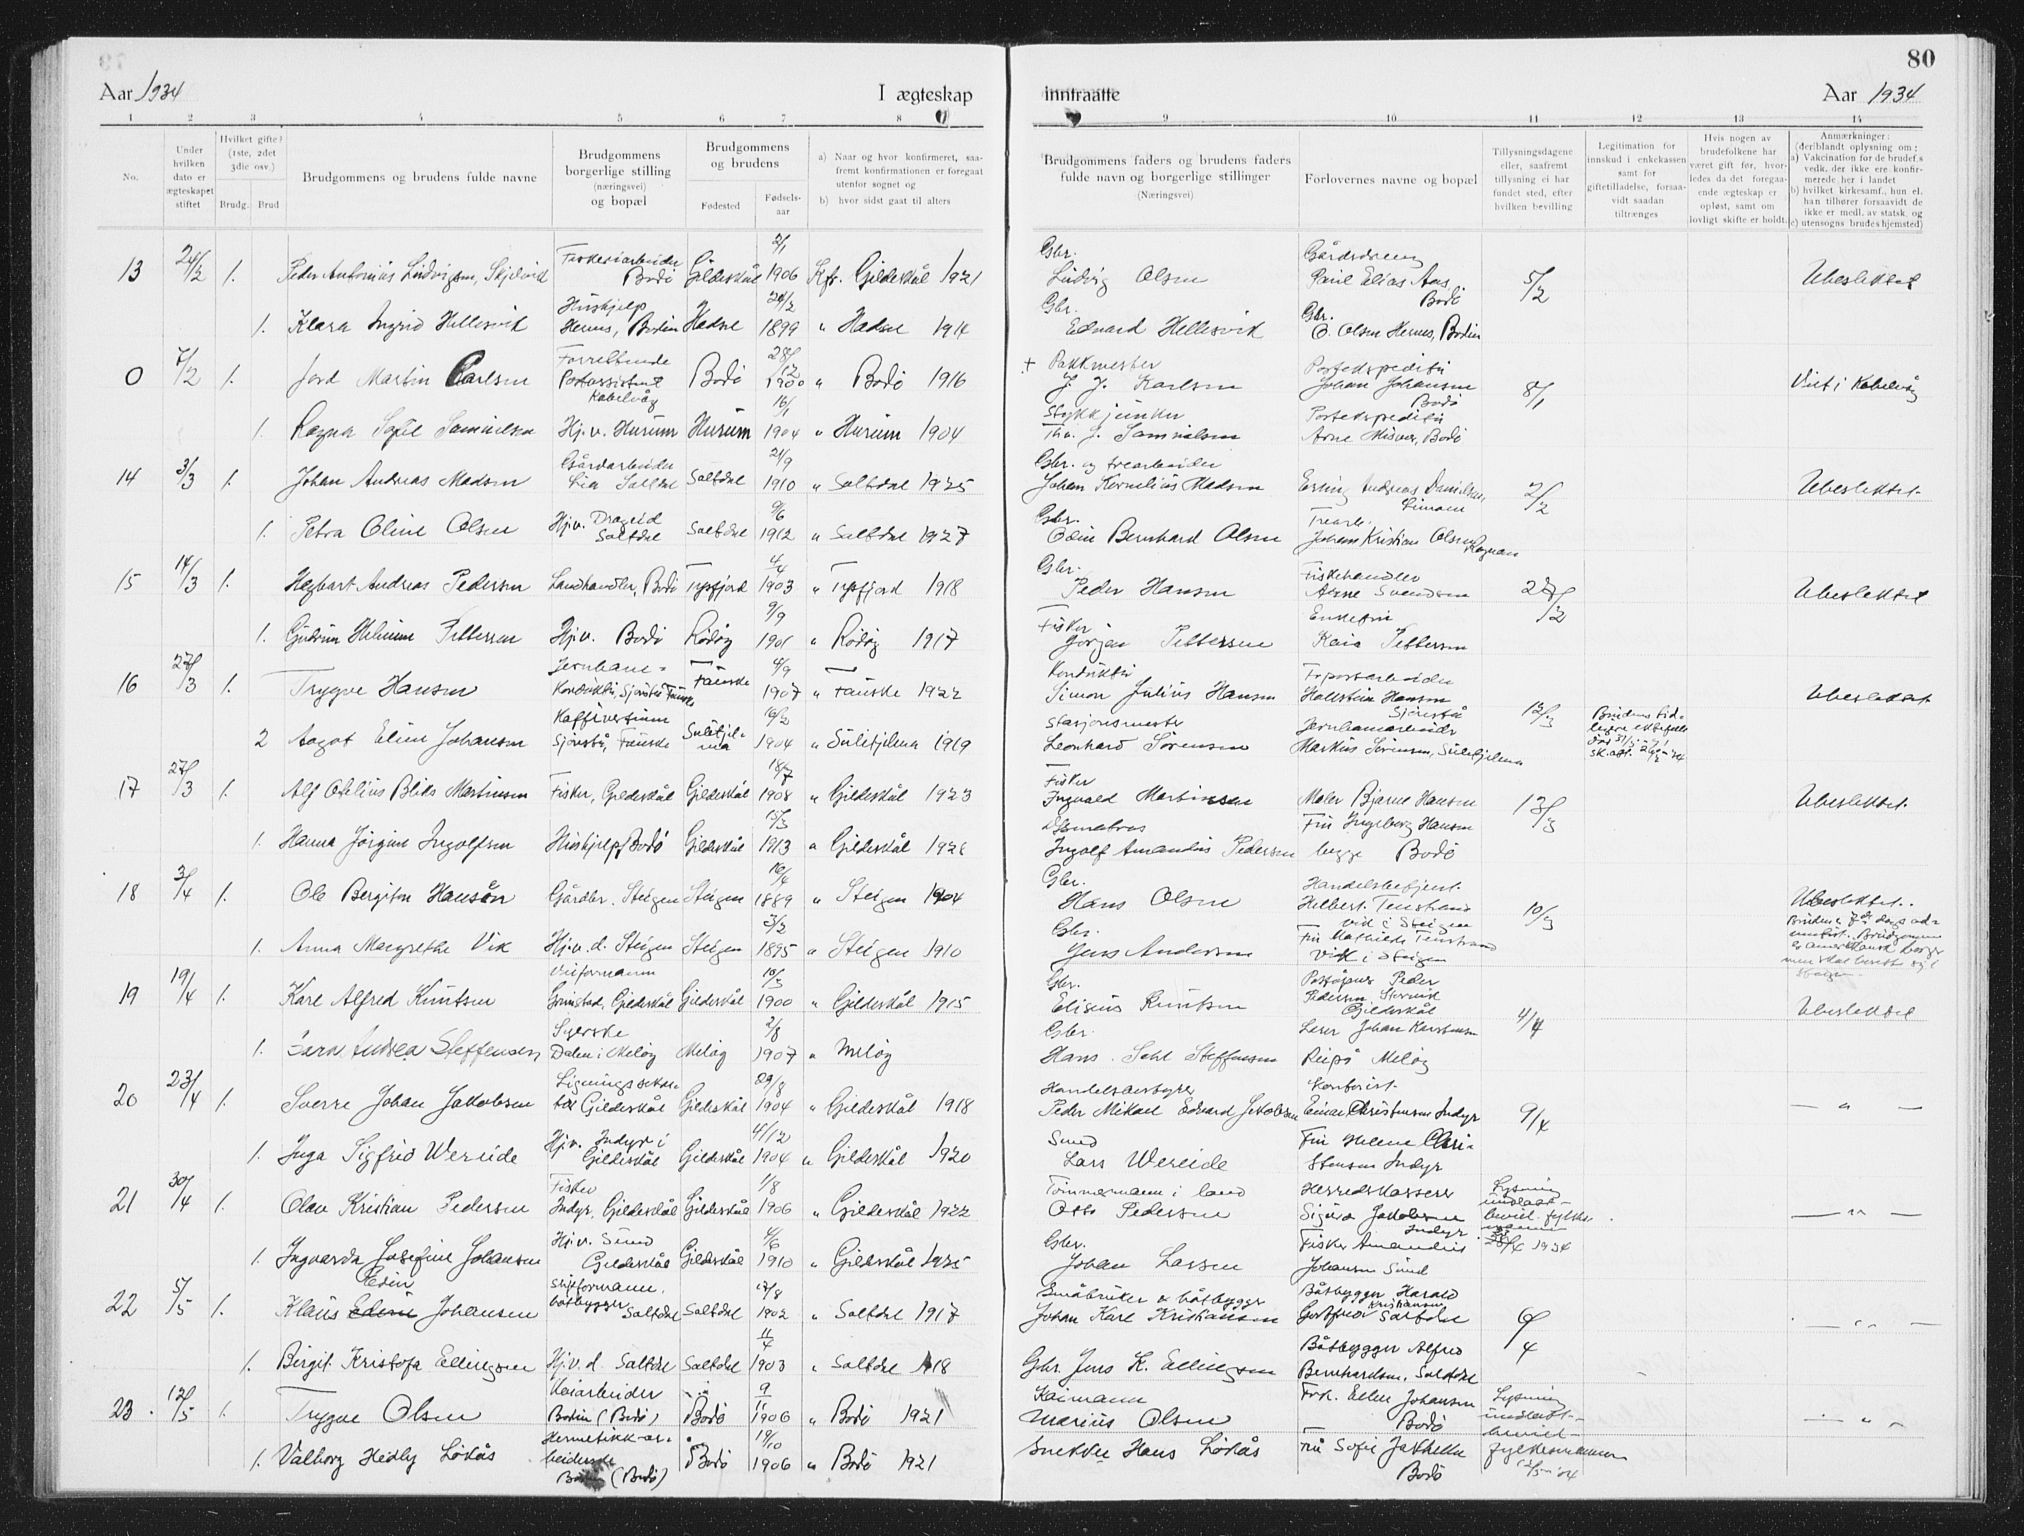 80
Aar 1934
I ægteskap
inntraatte
Aar 1934
1 2 3 4 5 6 7 8 9 10 11 12 13 14
No.
Under hvilken dato er ægteskapet stiftet
Hvilket gifte? (1ste, 2det 3die osv.)
Brudg. Brud
Brudgommens og brudens fulde navne
Brudgommens borgerlige stilling (næringsvei) og bopæl
Brudgommens og brudens
Fødested
Fødsels-aar
a) Naar og hvor konfirmeret, saa-fremt konfirmationen er foregaat utenfor sognet og
b) hvor sidst gaat til alters
Brudgommens faders og brudens faders fulde navn og borgerlige stillinger
(Næringsvei)
Forlovernes navne og bopæl
Tillysningsdagene eller, saafremt tillysning ei har fundet sted, efter hvilken bevilling
Legitimation for innskud i enkekassen samt for giftetilladelse, forsaa-vidt saadan tiltrænges
Hvis nogen av brudefolkene har været gift før, hvor-ledes da det foregaa-ende ægteskap er opløst, samt om lovligt skifte er holdt.
Anmærkninger: (deriblandt oplysning om:
a) Vakcination for de brudef.s vedk. der ikke ere konfir-merede her i landet
b) hvilket kirkesamf., hun el. han tilhører forsaavidt de ikke er medl. av statsk. og
c) utensogns brudes hjemsted)
13 24/2 1. Peder Antonius Ludvigsen, Skjelvik Fiskeriarbeider Bodö Gildeskål 2/1 1906 Kfr. Gildeskål 1921 Gbr. Ludvig Olsen Gårdsdreng Paul Elias Aas, Bodö 5/2 Ubeslektet
1. Klara Ingrid Hellesvik Hushjelp Hernes, Bodin Hadsel 24/2 1899 " Hadsel 1914 Gbr. Edvard Hellesvik Gbr. O. Olsen Hernes, Bodin
0 7/2 1. Jord Martin Carlsen Forrettende Postassistent Kabelvåg Bodö 28/12 1900 " Bodö 1916 + Pakkmester J. J. Karlsen Postekspeditör Johan Johansen Bodö 8/1 Viet i Kabelvåg
1. Ragna Sofie Samuelsen Hj.v. Hurum Hurum 16/1 1904 " Hurum 1904 Stykkjunker Thv. J. Samuelsen Postekspeditör Arne Misvær, Bodö
14 3/3 1. Johan Andreas Madsen Gårdarbeider Lia Saltdal Saltdal 21/9 1910 " Saltdal 1925 Gbr. og trearbeider Johan Kornelius Madsen Erling Andreas Danielsen, 2/2 Ubeslektet.
1. Petra Oline Olsen Hj.v. Drageid Saltdal Saltdal 9/6 1912 " Saltdal 1927 Gbr. Odin Bernhard Olsen Trearb. Johan Kristian Olsen Rognan
15 14/3 1. Hagbart Andreas Pedersen Landhandler, Bodö Tysfjord 4/4 1903 " Tysfjord 1918 Gbr. Peder Hansen Fiskehandler Arne Svendsen 28/2 Ubeslektet
1. Gudrun Helmine Pettersen Hj.v. Bodö Rödöy 9/9 1901 " Rödöy 1917 Fisker Jörgen Pettersen Enkefru Kaia Pettersen
16 27/3 1. Trygve Hansen Jernbane-Konduktör, Sjönstå Fauske Fauske 4/9 1907 " Fauske 1922 Konduktör Simon Julius Hansen Hallstein Hansen Sjönstå 12/3 Ubeslektet
2 Aagot Elise Johansen Kaffévertinne Sjönstå, Fauske Sulitjel-ma 16/2 1904 " Sulitjelma 1919 Stasjonsmester Leonhard Sörensen Markus Sörensen, Sulitjelma Brudens tid-ligere ektefelle
17 27/3 1. Alf Odelius Blids Martinsen Fisker, Gildeskål Gildeskål 18/7 1908 " Gildeskål 1923 Fisker Ingvald Martinsen Maler Bjarne Hansen 13/3 Ubeslektet.
1. Hanna Jörgine Ingolfsen Hushjelp, Bodö Gildeskål 13/3 1913 " Gildeskål 1928 Ingolf Amandus Pedersen Fru Ingeborg Hansen begge Bodö
18 3/4 1. Ole Bergiton Hansen Gårdbr. Steigen Steigen 16/4 1889 " Steigen 1904 Gbr. Hans Olsen Handelsbetjent. Helbert Tenstrand vik i Steigen 10/3 Ubeslektet.
1. Anna Margrethe Vik Hj.v.d. Steigen Steigen 3/2 1895 " Steigen 1910 Gbr. Jens Andersen Fru Mathilde Tenstrand Vik i Steigen
19 19/4 1. Karl Alfred Knutsen Veiformann Grimstad, Gildeskål Gildeskål 10/3 1900 " Gildeskål 1915 Gbr. Elisius Knutsen Poståpner Peder Pedersen, Storvik Gildeskål 4/4 Ubeslektet
1. Sara Andrea Steffensen Syerske Dalen i Melöy Melöy 2/8 1907 " Melöy Gbr. Hans Steffensen Lærer Johan Karstensen Reipå Melöy
20 23/4 1. Sverre Johan Jakobsen Ligningssekre-tær Gildeskål Gildeskål 29/8 1904 " Gildeskål 1918 Handelsbestyrer Peder Mikael Edvard Jakobsen Kontorist. Einar Christensen Indyr 9/4 — " —
1. Inga Sigfrid Wereide Hj.v. Indyr i Gildeskål Gildeskål 4/12 1904 " Gildeskål 1920 Smed Lars Wereide Fru Helene Chri-stensen Indyr
21 30/4 1. Olav Kristian Pedersen Fisker Indyr, Gildeskål Gildeskål 1/8 1906 " Gildeskål 1922 Tömmermann i land Otto Pedersen Herredskasserer Sigurd Jakobsen Indyr Lysning undlatt- bevil. fylkes- 28/4 1934 — " —
1. Ingvarda Josefine Johansen Hj.v. Sund Gildeskål Gildeskål 4/6 1910 " Gildeskål 1925 Gbr. Johan Larsen Fisker Amandus Johansen Sund
22 5/5 1. Klaus Edin Johansen Skiftformann, båtbygger Saltdal Saltdal 17/8 1902 " Saltdal 1917 Småbruker & båtbygger Johan Karl Kristiansen Båtbygger Harald Gotfred Kristiansen Saltdal 6/4 — " —
1. Birgit Kristofa Ellingsen Hj.v.d. Saltdal Saltdal 11/4 1903 " Saltdal 1918 Gbr. Jens K. Ellingsen Båtbygger Alfred Bernhardsen, Saltdal
23 12/5 1. Trygve Olsen Kaiarbeider Bodin (Bodö) Bodö 9/11 1906 " Bodö 1921 Kaimann Marius Olsen Frk. Ellen Johansen Bodö Lysning undlatt- bevil- fylkesmannen 12/5-34 — " —
1. Valborg Hedly Lökås Hermetikk-ar-beiderske Bodin (Bodö) Bodö 19/10 1906 " Bodö 1921 Snekker Hans Lökås Fru Sofie Jakhelln Bodö